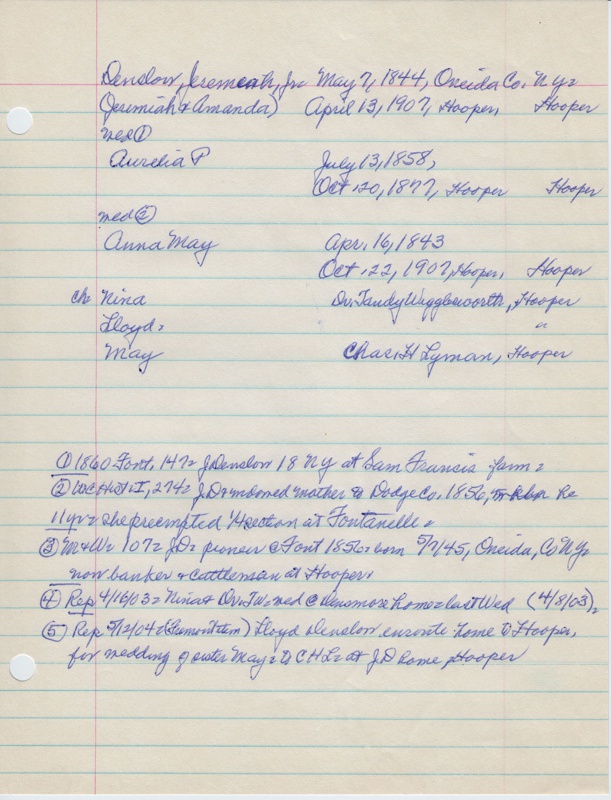 Denslow, Jeremeah, Jr= May 7, 1844, Oneida Co. NY=
(Jeremiah & Amanda) April 13, 1907, Hooper, Hooper
med ①
Aurelia P July 13, 1858,
Oct. 20, 1877, Hooper Hooper
med ②
Anna May Apr. 16, 1843
Oct. 22, 1907, Hooper, Hooper
ch= Nina Dr. Tandy Wigglesworth, Hooper
Lloyd= "
May Chas. H Lyman, Hooper
① 1860 Font. 147= J Denslow 18 NY at Sam Francis farm=
② Hist. I, 274= J.D & widowed mother to Dodge Co. 1856, Re
11 yr= she preempted ¼ section at Fontanelle=
③ M&W= 107= J.D= pioneer @ Font 1856= born 5/7/45, Oneida, Co NY=
now banker & cattleman at Hooper.
④ Rep 4/16/03= Nina & Dr. = med @ home= last Wed (4/8/03)=
⑤ Rep 5/12/04= ) Lloyd Denslow enroute home to Hooper,
for wedding of sister May= to CHL= at J.D home, Hooper